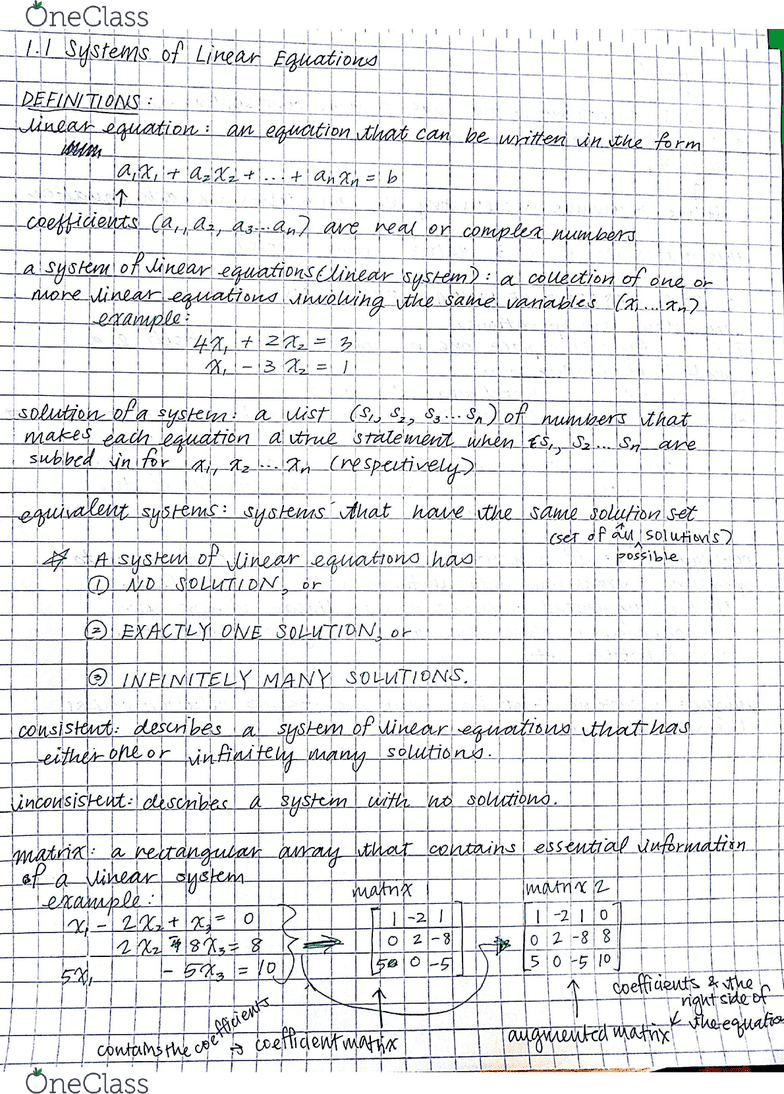 OneClass
1.1 Systems of Linear Equations
DEFINITIONS:
linear equation: an equation that can be written in the form
a₁x₁ + a₂x₂ + ... + aₙxₙ = b
↑
coefficients (a₁, a₂, a₃...aₙ) are real or complex numbers
a system of linear equations (linear system): a collection of one or
more linear equations involving the same variables (x₁...xₙ)
example:
4x₁ + 2x₂ = 3
x₁ - 3x₂ = 1
solution of a system: a list (s₁, s₂, s₃...sₙ) of numbers that
makes each equation a true statement when s₁, s₂...sₙ are
subbed in for x₁, x₂...xₙ (respectively)
equivalent systems: systems that have the same solution set
(set of all possible solutions)
☆ A system of linear equations has
① NO SOLUTION, or
② EXACTLY ONE SOLUTION, or
③ INFINITELY MANY SOLUTIONS.
consistent: describes a system of linear equations that has
either one or infinitely many solutions.
inconsistent: describes a system with no solutions.
matrix: a rectangular array that contains essential information
of a linear system
example: matrix 1 matrix 2
x₁ - 2x₂ + x₃ = 0 [1 -2 1] [1 -2 1 0]
2x₂ - 8x₃ = 8 → [0 2 -8] → [0 2 -8 8]
5x₁ - 5x₃ = 10 [5 0 -5] [5 0 -5 10]
contains the coefficients → coefficient matrix
augmented matrix
coefficients & the
right side of
the equation
OneClass